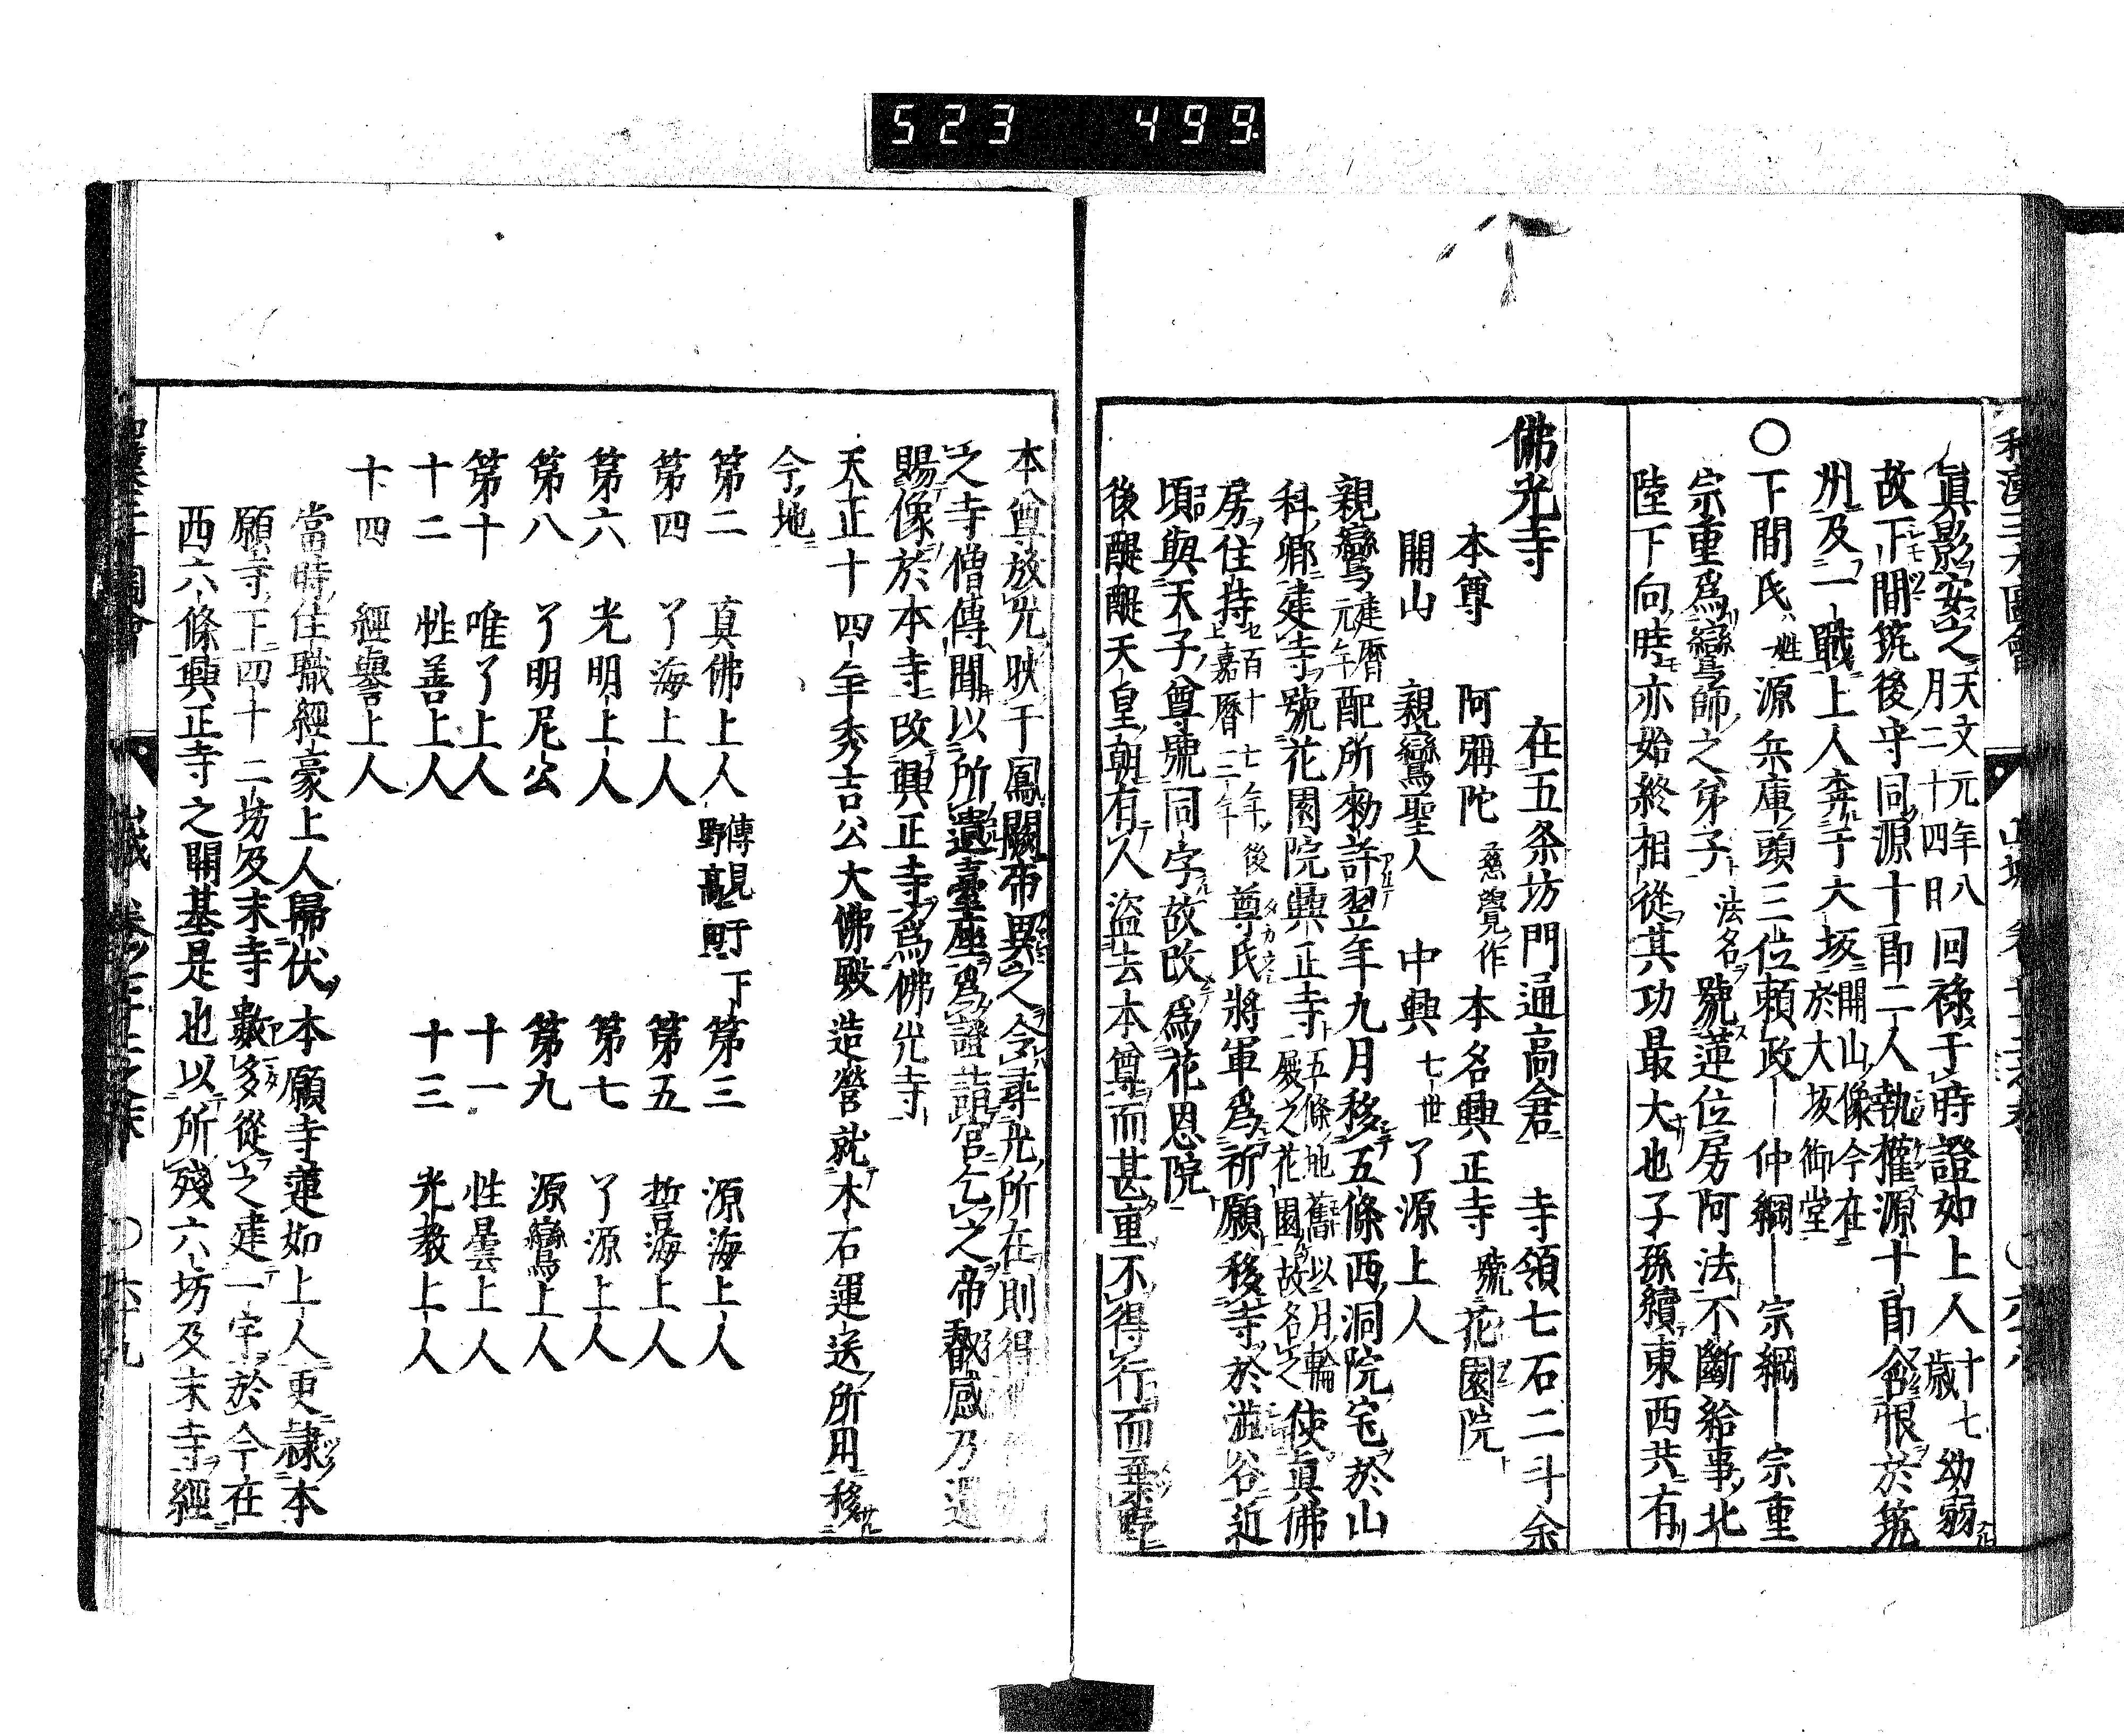 523 499
眞影安之天文元年八月二十四日回祿于時證如上人十七歳幼弱
故下間筑後守同源十郎二人執權源十郎含恨於筑
州及一戰上人奔于大坂開山像今在於大坂御堂
○下間氏姓源兵庫頭三位頼政―仲綱―宗綱―宗重
宗重爲鸞師之弟子法名號蓮位房阿法不斷給事北
陸下向時亦始終相從其功最大也子孫續東西共有
佛光寺 在五条坊門通高倉 寺領七石二斗余
本尊 阿彌陀 慈覺作 本名興正寺 號花園院
開山 親鸞聖人 中興七世了源上人
親鸞建暦元年配所勑許翌年九月移五條西洞院宅於山
科郷建寺號花園院興正寺五條地舊以月輪殿之花園故名之使眞佛
房住持七百十七年後上嘉暦二年尊氏將軍爲祈願移寺於澁谷近
頃與天子尊號同字故改爲花恩院
後醍醐天皇朝有人盜去本尊而甚重不得行而棄野
本尊放光映于鳳闕帝異之令尋光所在則得
之寺僧傳聞以所遺臺座爲證詣宮乞之帝叡感乃還
賜像於本寺改興正寺爲佛光寺
天正十四年秀吉公大佛殿造營就木石運送所用移
今地
第二 真佛上人 傳見于下野高田下 第三 源海上人
第四 了海上人 第五 誓海上人
第六 光明上人 第七 了源上人
第八 了明尼公 第九 源鸞上人
第十 唯了上人 十一 性曇上人
十二 性善上人 十三 光教上人
十四 經譽上人
當時住職經豪上人歸伏本願寺蓮如上人更隷本
願寺下四十二坊及末寺數多從之建一宇於今在
西六條興正寺之開基是也以所殘六坊及末寺經